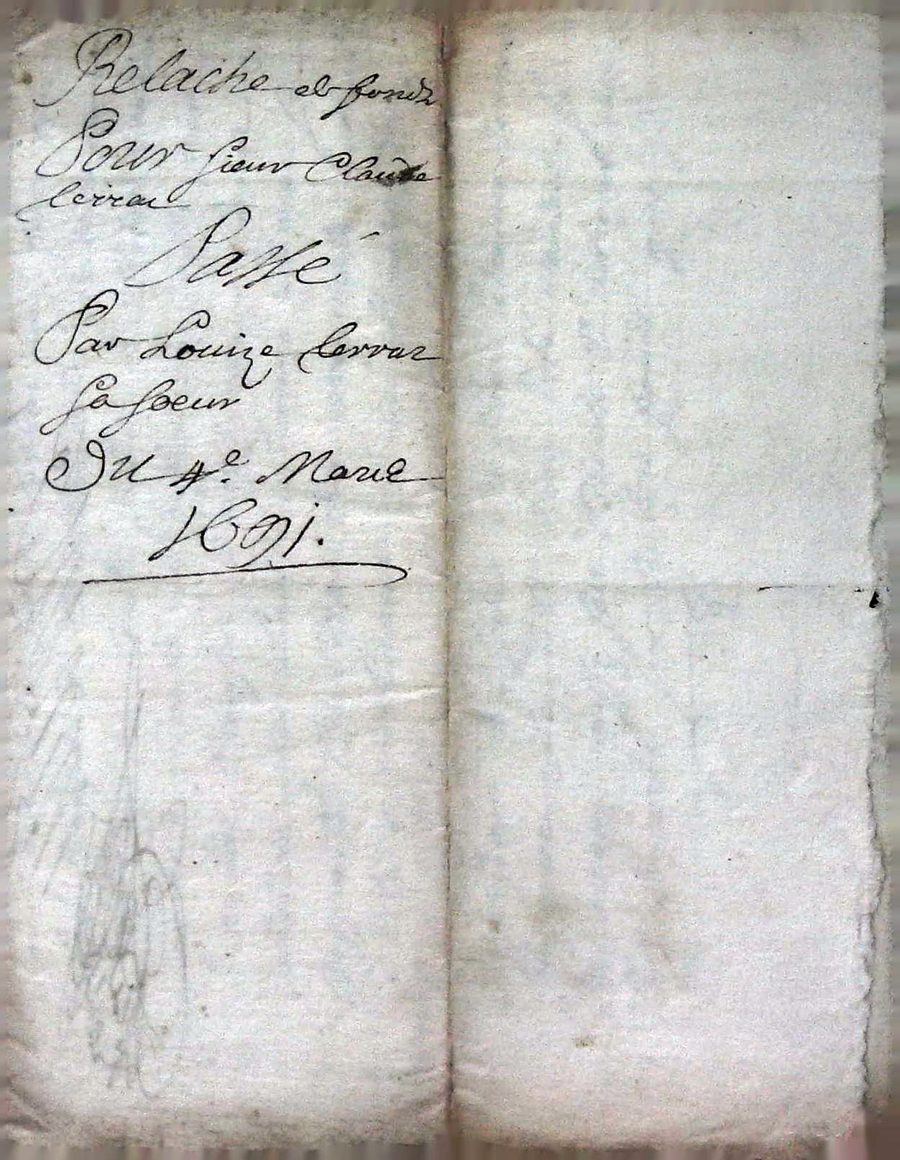 Relache de fondz
Pour sieur Claude
Cerraz
Passé
Par Louize Cerraz
sa soeur
Du 4e. Mars
1691.